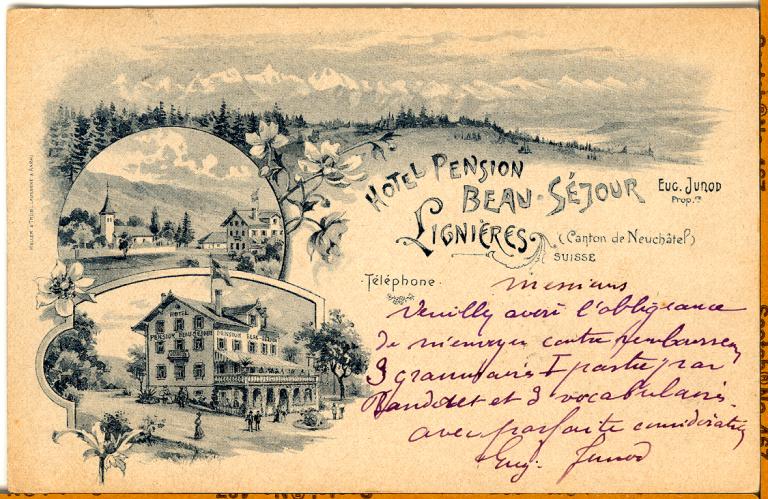 HOTEL PENSION
BEAU-SÉJOUR
EUG. JUNOD
Prop.re
LIGNIÈRES
(Canton de Neuchâtel)
SUISSE
Téléphone
HOTEL
PENSION BEAU-SÉJOUR
PENSION BEAU
Messieurs
Veuillez avoir l'obligeance
de m'envoyer contre rembours
3 grammaires I partie par
et 3 vocabulaires
avec parfaite considération
Eug. Junod